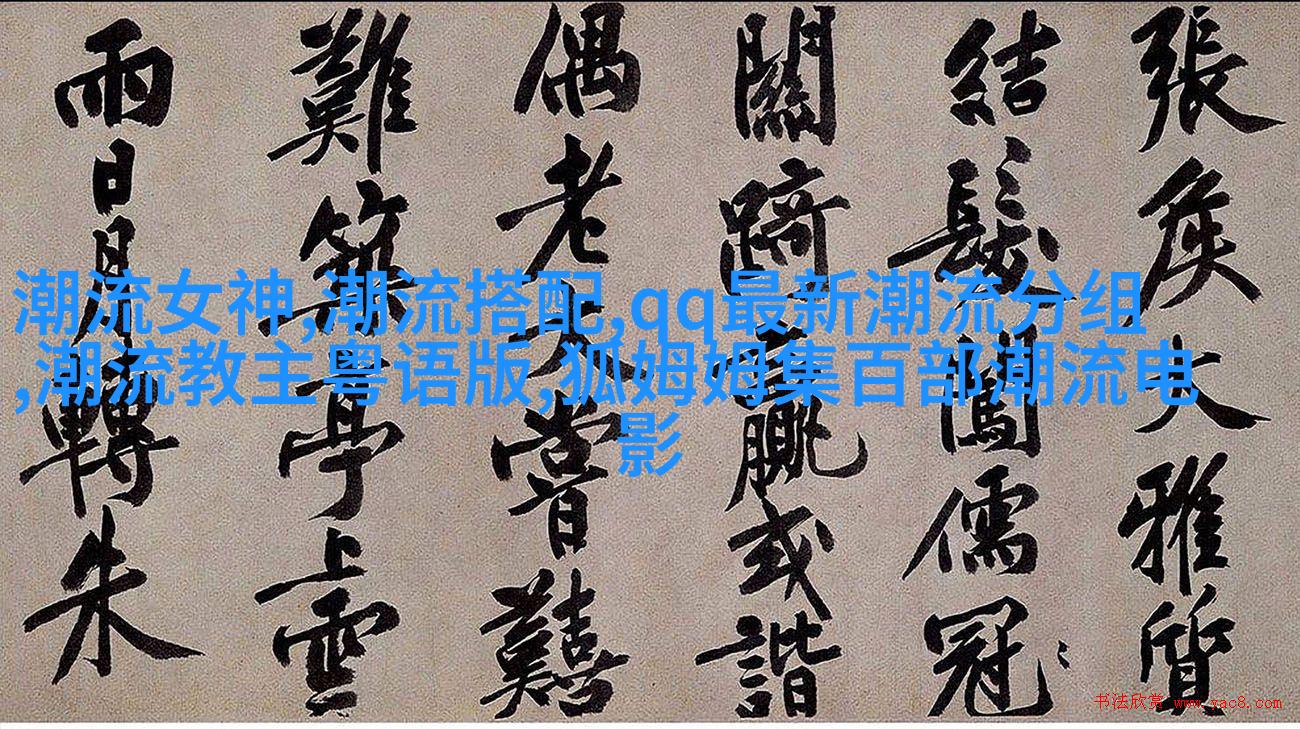 潮流女神,潮流搭配,qq最新潮流分组
,潮流教主粤语版,狐姆姆集百部潮流电
影
張侯大雅質
結髮闖儒冠
關踦羸或諧
偶老大嘗囏
難築亭上雲
雨日月轉朱
书法欣赏 www.yac8.com